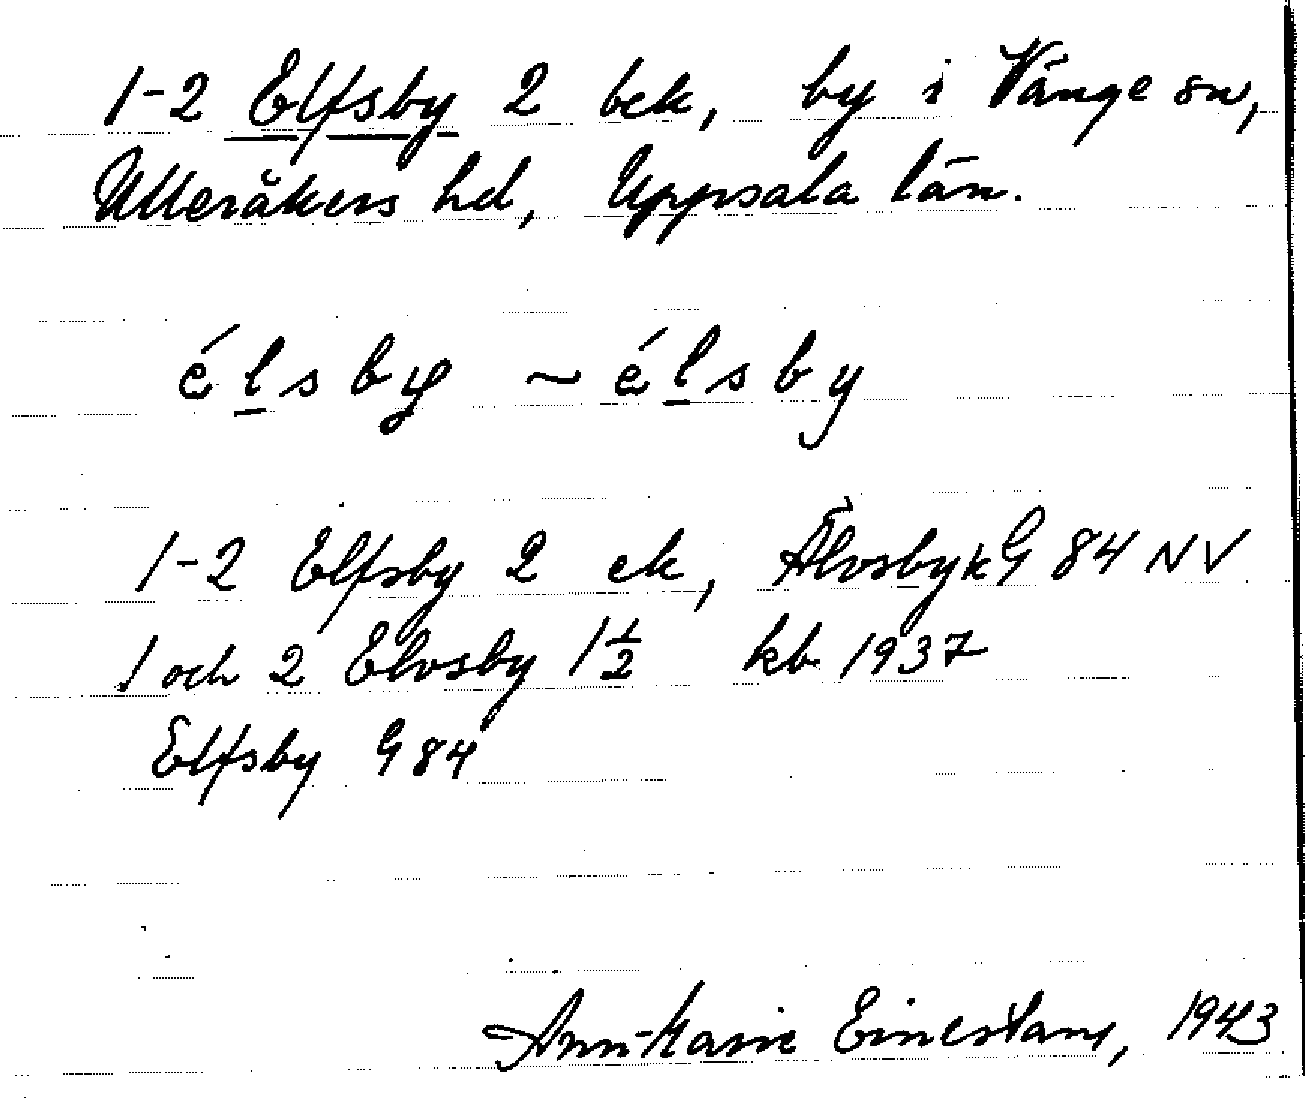 1-2 Elfsby 2 bek, by i Vänge sn,
Ulleråkers hd, Uppsala län.
élsby ~ élsby
1-2 Elfsby 2 ek, Älvsby k G 84 NV
1 och 2 Elvsby 1 1/2 kb 1937
Elfsby G 84
Ann-Marie 1943